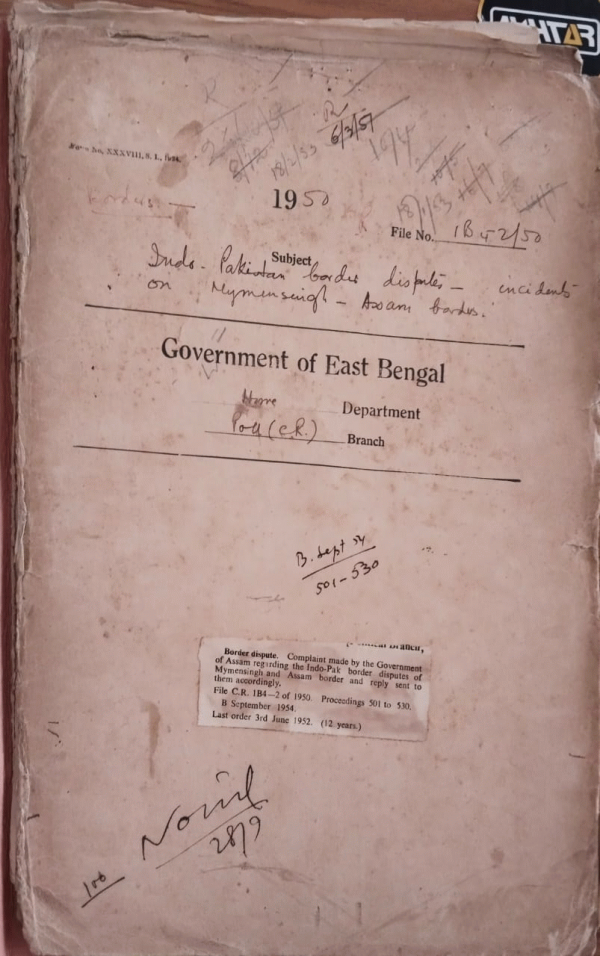 AKHTAR
R
R
6/3/51
18/2/53
10/4
Form No. XXXVIII, S. I., 
Border —
1950
18/1/53
File No. 1B4-2/50
Subject
Indo-Pakistan border disputes — incidents
on Mymensingh – Assam border.
Government of East Bengal
Home Department
Poll (C.R.) Branch
B. Sept 54
501-530
Branch,
Border dispute. Complaint made by the Government
of Assam regarding the Indo-Pak border disputes of
Mymensingh and Assam border and reply sent to
them accordingly.
File C.R. 1B4—2 of 1950. Proceedings 501 to 530.
B September 1954.
Last order 3rd June 1952. (12 years.)
28/9